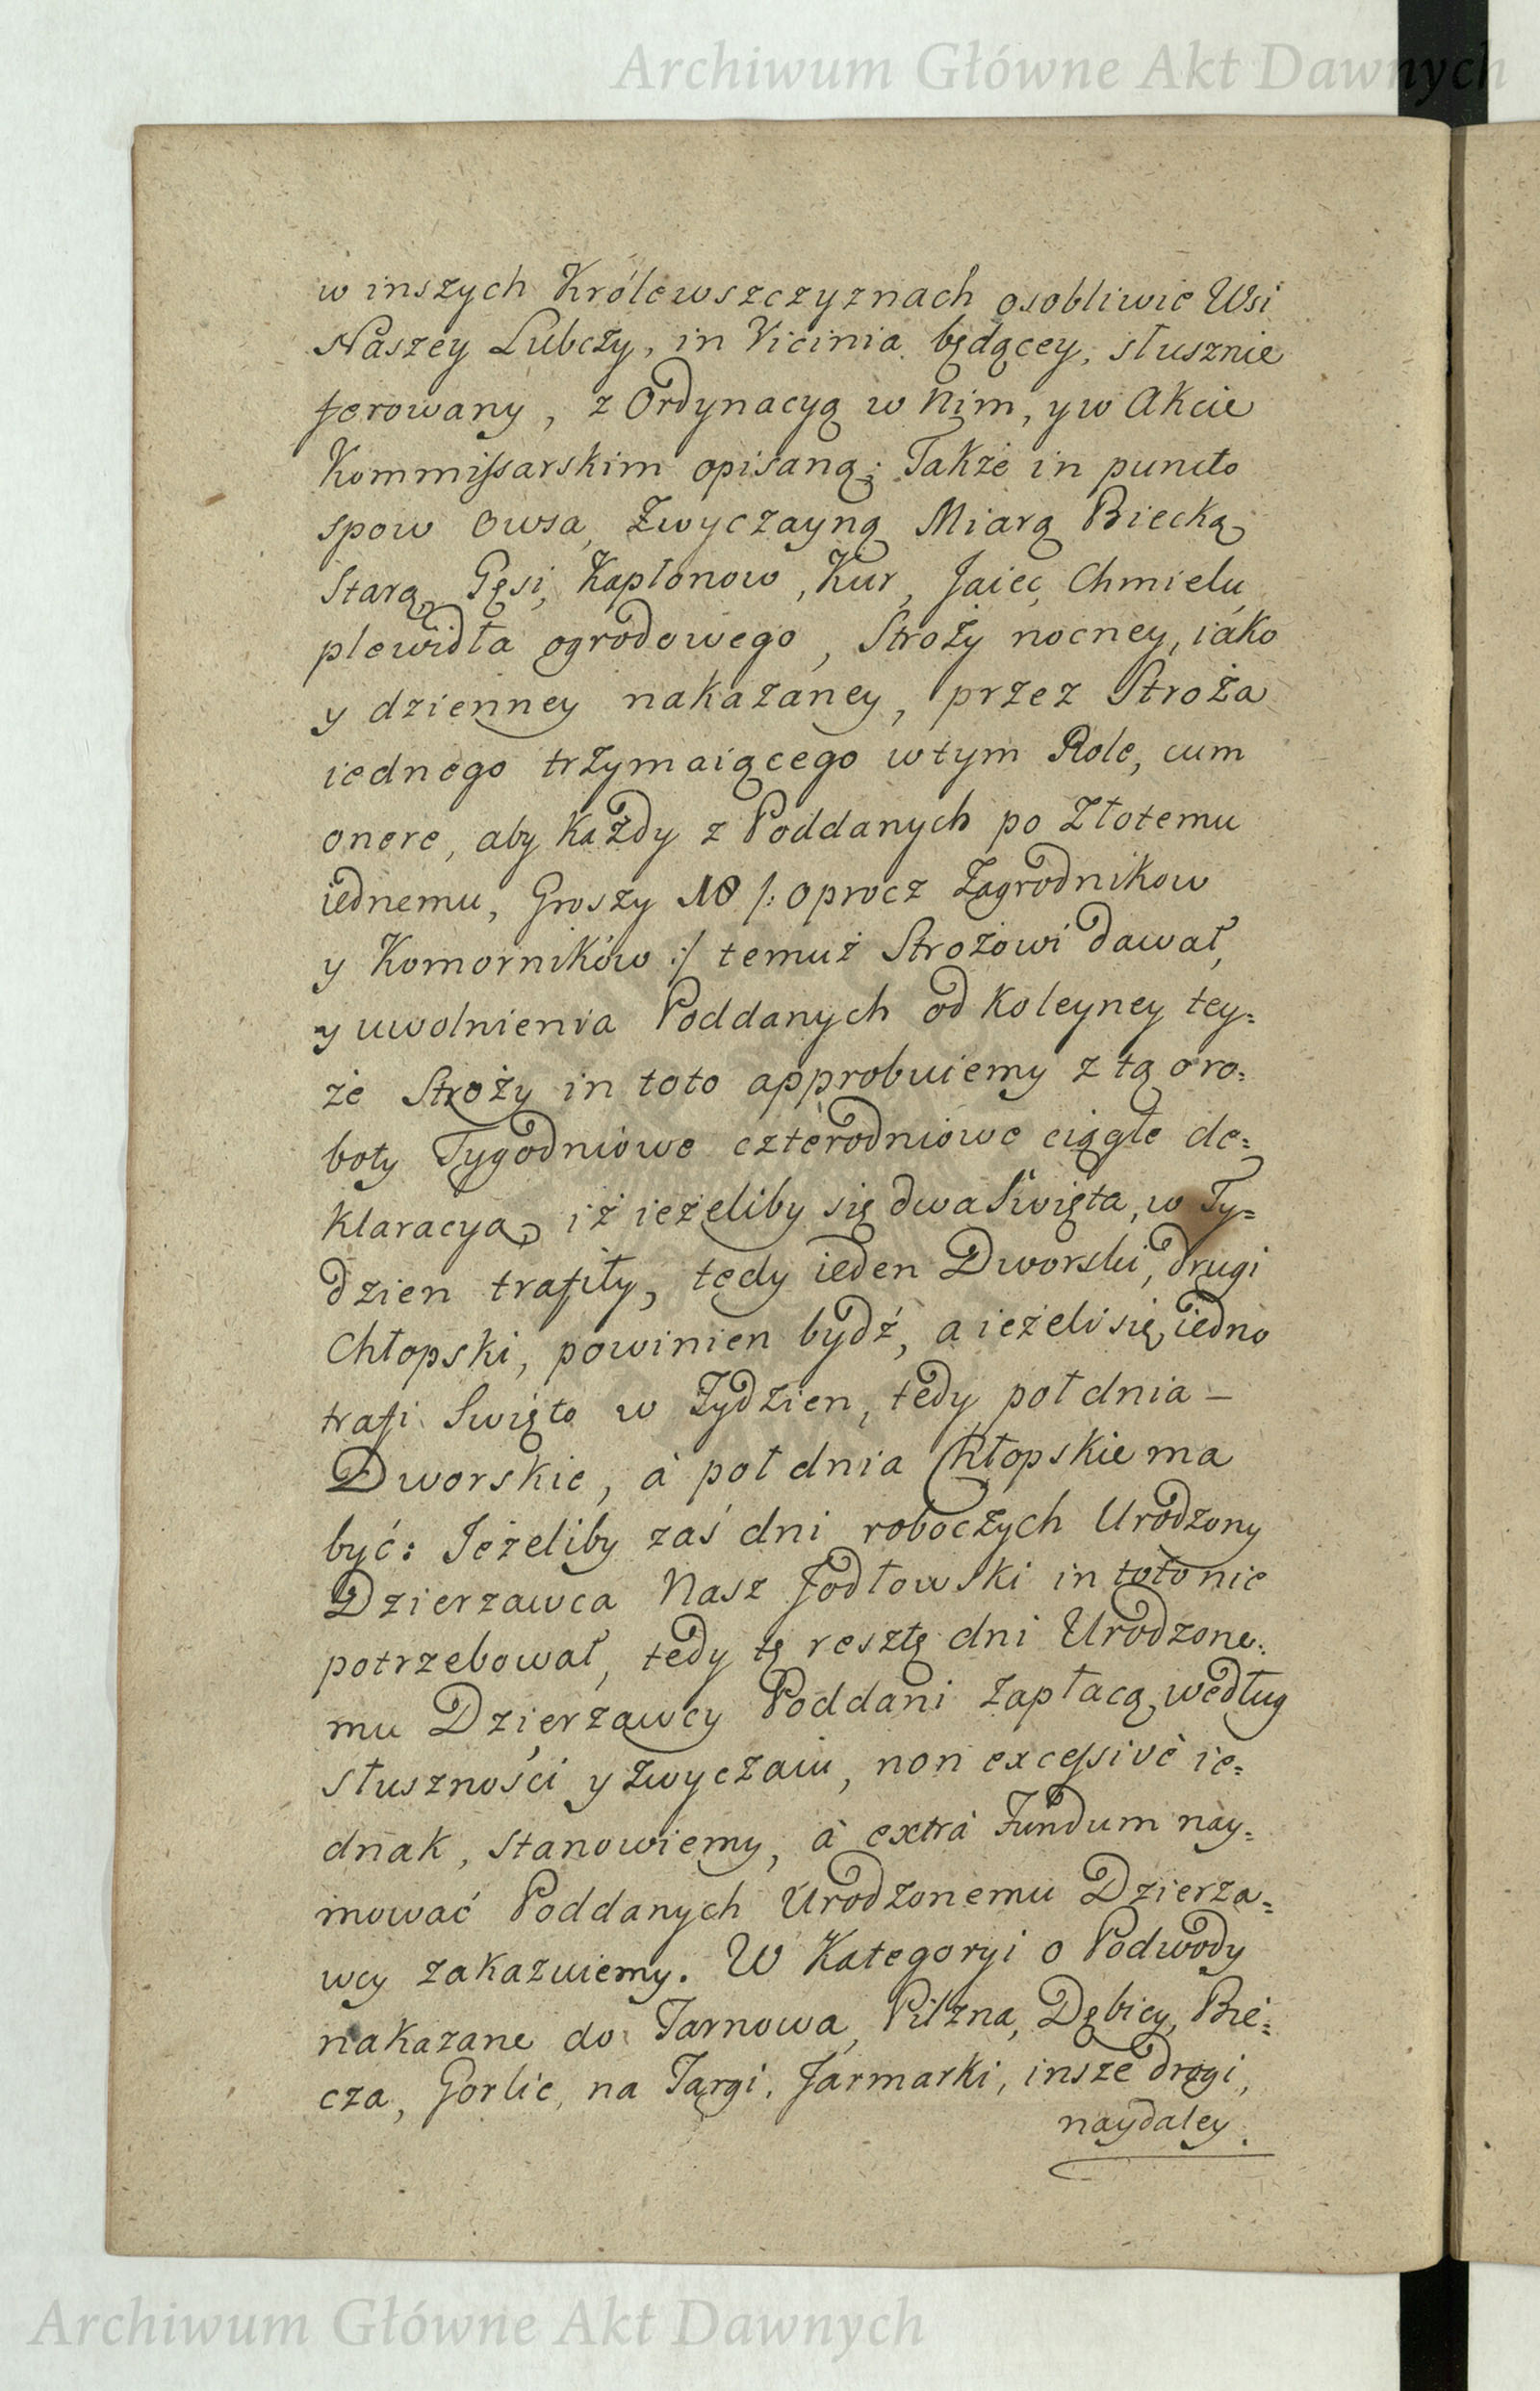 Archiwum Główne Akt Dawnych
w inszych Królewszczyznach osobliwie Wsi
Naszey Lubczy, in Vicinia będącey, słusznie
ferowany, z Ordynacyą w nim, y w Akcie
Kommissarskim opisaną; Także in puncto
spow Owsa, Zwyczayną Miarą Biecką
Starą, Gęsi, Kapłonow, Kur, Jaiec, Chmielu,
plewidła ogrodowego, Stroży nocney, iáko
y dzienney nakazaney, przez Stroża
iednego trzymaiącego w tym Role, cum
onere, aby Każdy z Poddanych po Złotemu
iednemu, Groszy 18 /: oprocz Zagrodnikow
y Komorników :/ temuż Strożowi dawał,
y uwolnienia Poddanych od Koleyney tey=
że Stroży in toto approbuiemy z tą o ro=
boty Tygodniowe czterodniowe ciągłe de=
klaracyą, iż ieżeliby się dwa Swięta, w Ty=
dzien trafiły, tedy ieden Dworski, drugi
Chłopski, powinien bydź, a ieżeli się iedno
trafi Swięto w Tydzien, tedy poł dnia –
Dworskie, à poł dnia Chłopskie ma
być: Jeżeliby zaś dni roboczych Urodzony
Dzierzawca Nasz Jodłowski in toto nie
potrzebował, tedy tę resztę dni Urodzone=
mu Dzierzawcy Poddani zapłacą, według
słuszności y zwyczaiu, non excessivè ie=
dnak, stanowiemy, à extrà Fundum nay=
mować Poddanych Urodzonemu Dzierza=
wcy zakazuiemy. W Kategoryi o Podwody
nakazane do Tarnowa, Pilzna, Dębicy, Bie=
cza, Gorlic, na Targi, Jarmarki, insze drogi,
naydaley.
Archiwum Główne Akt Dawnych